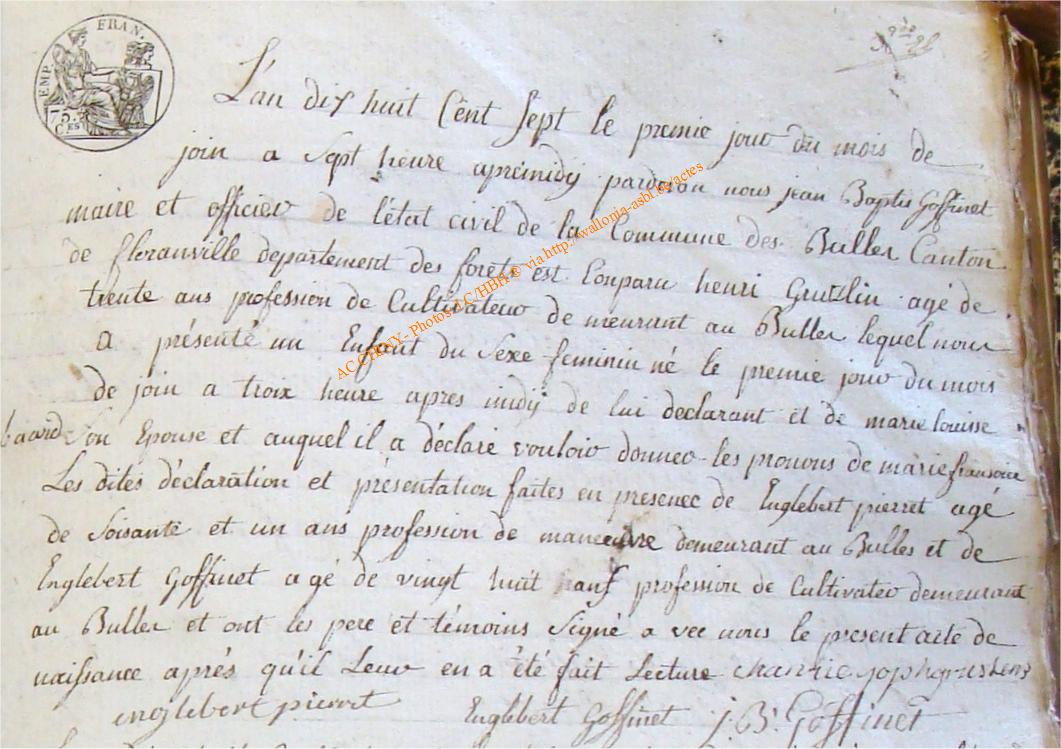 EMP. FRAN.
75. CES
L'an dix huit Cent Sept le premie jour du mois de
join a Sept heure aprèmidÿ pardevon nous jean Baptis Goffinet
maire et officier de l'état civil de la Commune des Buller Canton
de floranville departement des forets est Conparu henri agé de
trente ans profession de Cultivateur de meurant au Buller lequel nous
a présenté un Enfant du Sexe feminin né le premie jour du mois
de join a troix heure apres midÿ de lui declarant et de marie louisse
Son Epouse et auquel il a déclaré vouloir donner les prenons de marie fransoise
Les dités déclaration et présentation faites en presence de Englebert pierret agé
de Soisante et un ans profession de maneuvre demeurant au Bulles et de
Englebert Goffinet agé de vingt huit ans profession de Cultivateur demeurant
au Buller et ont les pere et témoins Signé a vec nous le present acte de
naissance aprés qu'il Leur en a été fait Lecture
englebert pierret Englebert Goffinet J. B. Goffinet
AC CHINY - Photos LC/HBH © via http://wallonia-asbl.be/actes